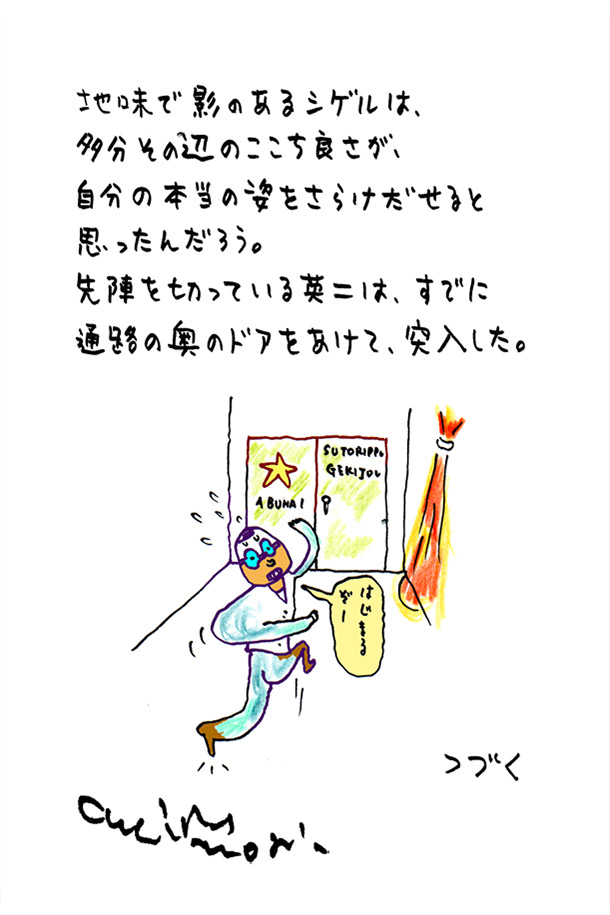 地味で影のあるシゲルは、
多分その辺のここち良さが、
自分の本当の姿をさらけだせると
思ったんだろう。
先陣を切っている英二は、すでに
通路の奥のドアをあけて、突入した。
ABUNAI
SUTORIPPU
GEKIJOU
はじまる
ぞー
つづく